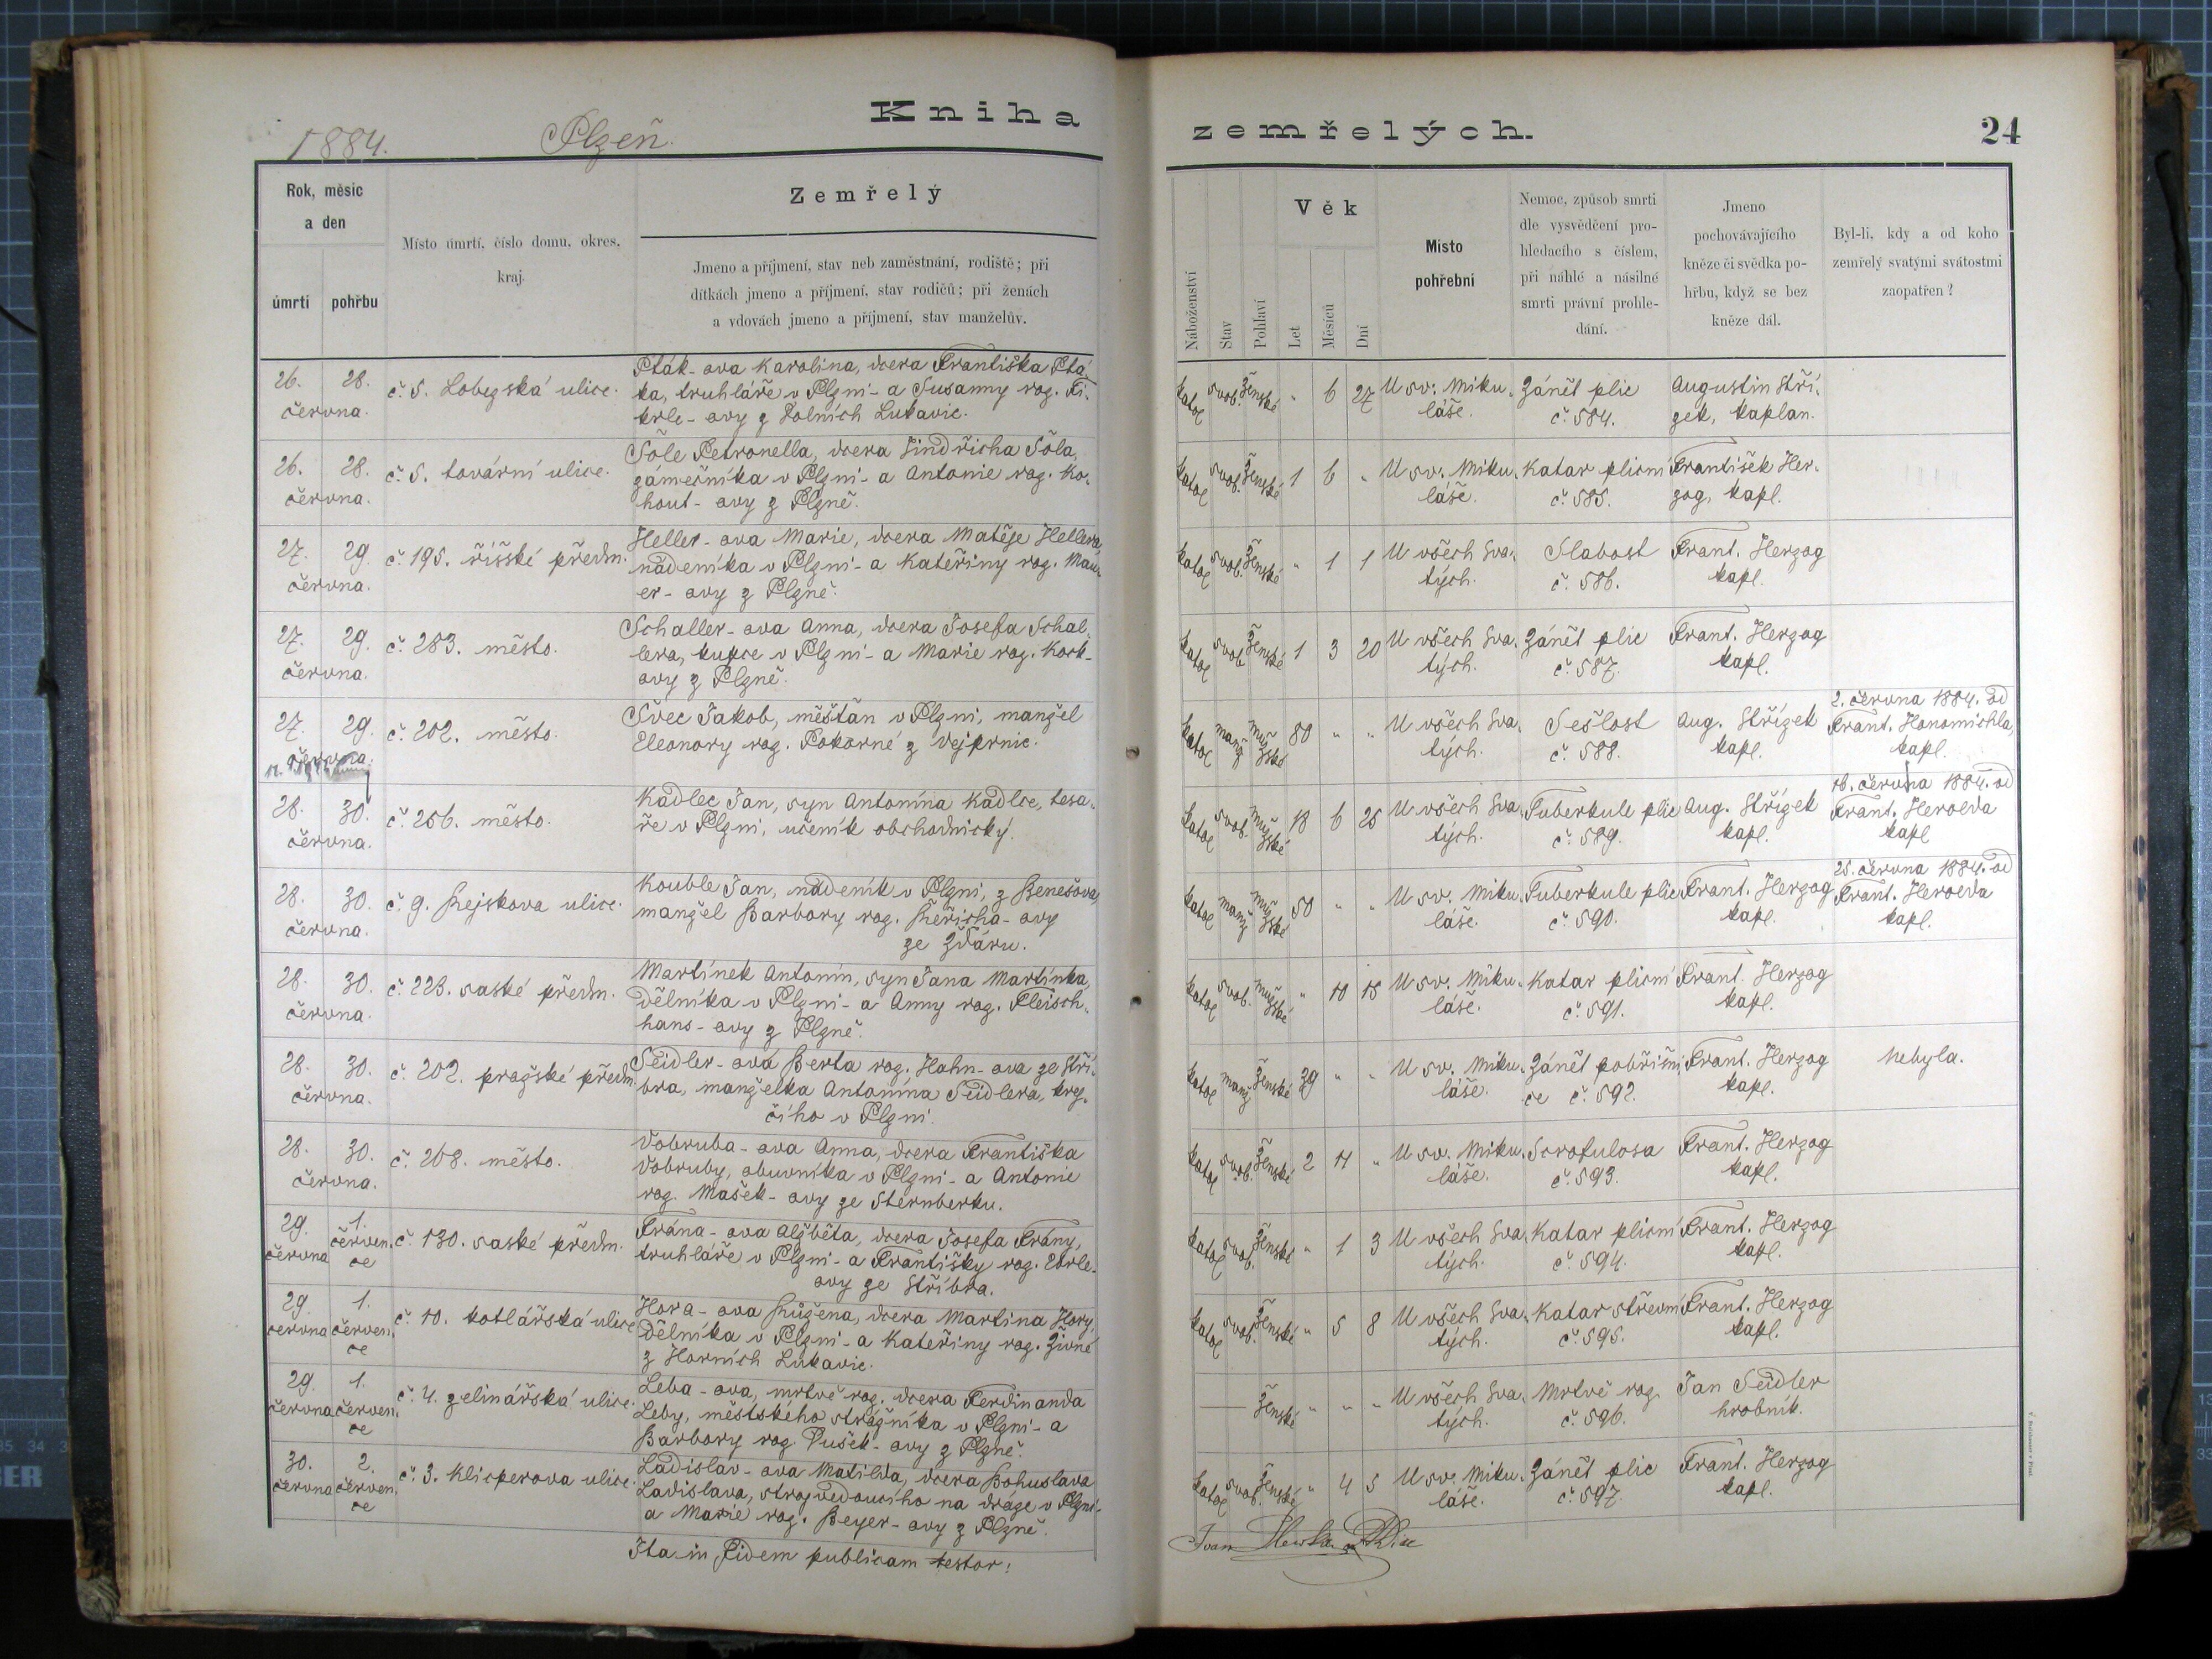 Kniha
1884. Plzeň.
Rok, měsíc
a den
úmrtí pohřbu
Místo úmrtí, číslo domu, okres,
kraj.
Zemřelý
Jmeno a příjmení, stav neb zaměstnání, rodiště; při
dítkách jmeno a příjmení, stav rodičů; při ženách
a vdovách jmeno a příjmení, stav manželův.
26. 28.
června.
č. 5. Lobezská ulice.
Pták-ova Karolina, dcera Františka Ptá-
ka, truhláře v Plzni - a Susanny roz. Ti-
krle-ovy z Dolních Lukavic.
26. 28.
června.
č. 5. tovární ulice.
Šôle Petronella, dcera Jindřicha Šôla,
zámečníka v Plzni - a Antonie roz. Ko-
hout-ovy z Plzně.
27. 29.
června.
č. 195. říšské předm.
Heller-ova Marie, dcera Matěje Hellera,
nádeníka v Plzni - a Kateřiny roz. Mau-
er-ovy z Plzně.
27. 29.
června.
č. 283. město.
Schaller-ova Anna, dcera Josefa Schal-
lera, kupce v Plzni - a Marie roz. Kock-
ovy z Plzně.
27. 29.
června.
č. 202. město.
Švec Jakob, měštan v Plzni, manžel
Eleonory roz. Pokorné z Vejprnic.
28. 30.
června.
č. 256. město.
Kadlec Jan, syn Antonína Kadlce, tesa-
ře v Plzni, učeník obchodnický.
28. 30.
června.
č. 9. Rejskova ulice.
Kouble Jan, nádeník v Plzni, z Benešova,
manžel Barbory roz. Řeřicha-ovy
ze Žďáru.
28. 30.
června.
č. 223. saské předm.
Martínek Antonín, syn Jana Martínka,
dělníka v Plzni - a Anny roz. Fleisch-
hans-ovy z Plzně.
28. 30.
června.
č. 202. pražské předm.
Seidler-ová Berta roz. Hahn-ova ze Stří-
bra, manželka Antonína Seidlera, krej-
čího v Plzni.
28. 30.
června.
č. 268. město.
Vobruba-ova Anna, dcera Františka
Vobruby, obuvníka v Plzni - a Antonie
roz. Mašek-ovy ze Sternberku.
29. 1.
června červen-
ce
č. 130. saské předm.
Frána-ova Alžběta, dcera Josefa Frány,
truhláře v Plzni - a Františky roz.
ovy ze Stříbra.
29. 1.
června červen-
ce
č. 10. kotlářská ulice
Hora-ova Růžena, dcera Martina Hory,
dělníka v Plzni - a Kateřiny roz. Živné
z Horních Lukavic.
29. 1.
června červen-
ce
č. 4. zelinářská ulice.
Leba-ova, mrtvě roz. dcera Ferdinanda
Leby, městského strážníka v Plzni - a
Barbory roz. Dušek-ovy z Plzně.
30. 2.
června červen-
ce
č. 3. Klicperova ulice.
Ladislav-ova Matilda, dcera Bohuslava
Ladislava, strojvedoucího na dráze v Plzni -
a Marie roz. Beyer-ovy z Plzně.
Ita in fidem publicam testor:
zemřelých.
24
Náboženství
Stav
Pohlaví
Věk
Let
Měsíců
Dní
Místo
pohřební
Nemoc, způsob smrti
dle vysvědčení pro-
hledacího s číslem,
při náhlé a násilné
smrti právní prohle-
dání.
Jmeno
pochovávajícího
kněze či svědka po-
hřbu, když se bez
kněze dál.
Byl-li, kdy a od koho
zemřelý svatými svátostmi
zaopatřen?
katol svob. ženské " 6 27 U sv. Miku- Zánět plic Augustin Stří-
láše. č. 584. zek, kaplan.
katol svob. ženské 1 6 " U sv. Miku- Katar plicní František Her-
láše. č. 585. zog, kapl.
katol svob. ženské " 1 1 U všech Sva- Slabost Frant. Herzog
tých. č. 586. kapl.
katol svob. ženské 1 3 20 U všech Sva- Zánět plic Frant. Herzog
tých. č. 587. kapl.
katol manž mužské 80 " " U všech Sva- Sešlost Aug. Střízek
tých. č. 588. kapl.
2. června 1884. od
Frant. Honomichla,
kapl.
katol svob. mužské 18 6 25 U všech Sva- Tuberkule plic Aug. Střízek
tých. č. 589. kapl.
16. června 1884. od
Frant. Herolda
kapl.
katol manž mužské 50 " " U sv. Miku- Tuberkule plic Frant. Herzog
láše. č. 590. kapl.
25. června 1884. od
Frant. Herolda
kapl.
katol svob. mužské " 10 15 U sv. Miku- Katar plicní Frant. Herzog
láše. č. 591. kapl.
katol manž ženské 29 " " U sv. Miku- Zánět pobřišni- Frant. Herzog Nebyla.
láše. ce č. 592. kapl.
katol svob. ženské 2 11 " U sv. Miku- Scrofulosa Frant. Herzog
láše. č. 593. kapl.
katol svob. ženské " 1 3 U všech Sva- Katar plicní Frant. Herzog
tých. č. 594. kapl.
katol svob. ženské " 5 8 U všech Sva- Katar střevní Frant. Herzog
tých. č. 595. kapl.
— ženské " " " U všech Sva- Mrtvě roz. Jan Seidler
tých. č. 596. hrobník.
katol svob. ženské " 4 5 U sv. Miku- Zánět plic Frant. Herzog
láše. č. 597. kapl.